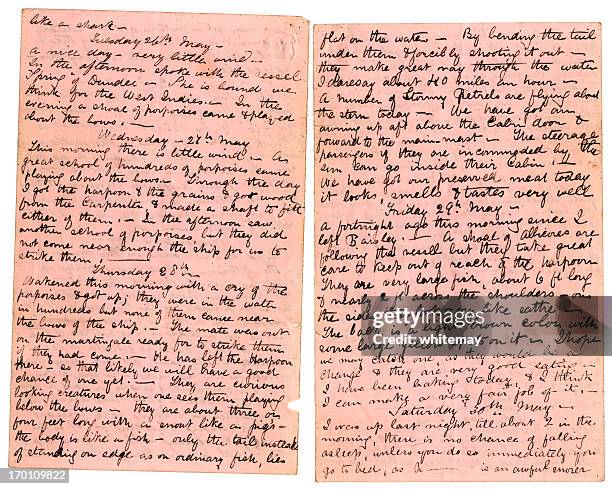 like a shark —
Tuesday 26th May —
A nice day — very little wind —
In the afternoon spoke with the vessel
Spring of Dundee — She is bound we
think for the West Indies — In the
evening a shoal of porpoises came & played
about the bows. —
Wednesday — 27th May
This morning there is little wind — A
great school of hundreds of porpoises came
playing about the bows. Through the day
I got the harpoon & the grains & got wood
from the Carpenter & made a shaft to fit
either of them. — In the afternoon saw
another school of porpoises, but they did
not come near enough the ship for us to
strike them.
Thursday 28th
Wakened this morning with a cry of the
porpoises & got up, they were in the water
in hundreds but none of them came near
the bows of the ship — The mate was out
on the martingale ready for to strike them
if they had come. — He has left the harpoon
there — so that likely we will have a good
chance of one yet. — They are curious
looking creatures when one sees them playing
below the bows — they are about three or
four feet long with a snout like a pigs —
the body is like a fish — only the tail instead
of standing on edge as on ordinary fish, lies
flat on the water — By bending the tail
under them & forcibly shooting it out —
they make great way through the water
I daresay about 40 miles an hour —
A number of Stormy Petrels are flying about
the stern today — We have got an
awning up aft above the Cabin door &
forward to the main mast — The steerage
passengers if they are incommoded by the
sun can go inside their Cabin. —
We have got our preserved meat today
it looks, smells & tastes very well
Friday 29th May —
A fortnight ago this morning since I
left — A shoal of are
following the vessel but they take great
care to keep out of reach of the harpoon
They are very large fish, about 6 ft long
& nearly 2 ft across the shoulders, on
the side like
The back is a light brown color, with
some on it — I hope
we may catch one as they would be a
change & they are very good eating —
I have been baking today & I think
I can make a very fair job of it. —
Saturday 30th May —
I was up last night, till about 2 in the
morning, there is no chance of falling
asleep, unless you do so immediately you
go to bed, as R—— is an awful snorer
iStock
Credit: whitemay
170109822